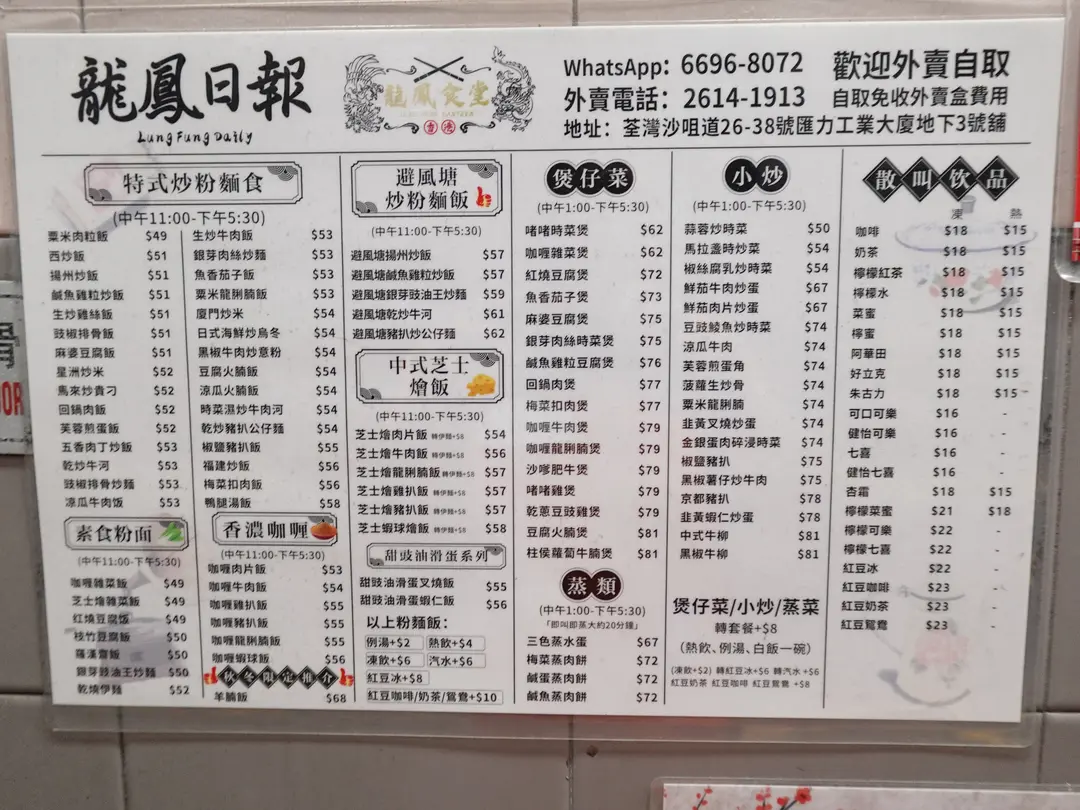 龍鳳日報
Lung Fung Daily
龍鳳食堂
香港
WhatsApp：6696-8072
外賣電話：2614-1913
地址：荃灣沙咀道26-38號匯力工業大廈地下3號舖
歡迎外賣自取
自取免收外賣盒費用
特式炒粉麵食
(中午11:00-下午5:30)
粟米肉粒飯 $49
西炒飯 $51
揚州炒飯 $51
鹹魚雞粒炒飯 $51
生炒雞絲飯 $51
豉椒排骨飯 $51
麻婆豆腐飯 $51
星洲炒米 $52
馬來炒貴刁 $52
回鍋肉飯 $52
芙蓉煎蛋飯 $52
五香肉丁炒飯 $53
乾炒牛河 $53
豉椒排骨炒麵 $53
凉瓜牛肉饭 $53
生炒牛肉飯 $53
銀芽肉絲炒麵 $53
魚香茄子飯 $53
粟米龍脷腩飯 $53
廈門炒米 $54
日式海鮮炒烏冬 $54
黑椒牛肉炒意粉 $54
豆腐火腩飯 $54
涼瓜火腩飯 $54
時菜濕炒牛肉河 $54
乾炒豬扒公仔麵 $54
椒鹽豬扒飯 $55
福建炒飯 $56
梅菜扣肉飯 $56
鴨腿湯飯 $58
素食粉面
(中午11:00-下午5:30)
咖喱雜菜飯 $49
芝士燴雜菜飯 $49
紅燒豆腐饭 $49
枝竹豆腐飯 $50
羅漢齋飯 $50
銀芽豉油王炒麵 $50
乾燒伊麵 $52
香濃咖喱
(中午11:00-下午5:30)
咖喱肉片飯 $53
咖喱牛肉飯 $54
咖喱雞扒飯 $55
咖喱豬扒飯 $55
咖喱龍脷腩飯 $55
咖喱蝦球飯 $56
秋冬限定推介
羊腩飯 $68
避風塘
炒粉麵飯
(中午11:00-下午5:30)
避風塘揚州炒飯 $57
避風塘鹹魚雞粒炒飯 $57
避風塘銀芽豉油王炒麵 $59
避風塘乾炒牛河 $61
避風塘豬扒炒公仔麵 $62
中式芝士
燴飯
(中午11:00-下午5:30)
芝士燴肉片飯 轉伊麵+$8 $54
芝士燴牛肉飯 轉伊麵+$8 $56
芝士燴龍脷腩飯 轉伊麵+$8 $57
芝士燴雞扒飯 轉伊麵+$8 $57
芝士燴豬扒飯 轉伊麵+$8 $57
芝士蝦球燴飯 轉伊麵+$8 $58
甜豉油滑蛋系列
甜豉油滑蛋叉燒飯 $55
甜豉油滑蛋蝦仁飯 $56
以上粉麵飯：
例湯+$2 熱飲+$4
凍飲+$6 汽水+$6
紅豆冰+$8
紅豆咖啡/奶茶/鴛鴦+$10
煲仔菜
(中午1:00-下午5:30)
啫啫時菜煲 $62
咖喱雜菜煲 $62
紅燒豆腐煲 $72
魚香茄子煲 $73
麻婆豆腐煲 $75
銀芽肉絲時菜煲 $75
鹹魚雞粒豆腐煲 $76
回鍋肉煲 $77
梅菜扣肉煲 $77
咖喱牛肉煲 $79
咖喱龍脷腩煲 $79
沙嗲肥牛煲 $79
啫啫雞煲 $79
乾蔥豆豉雞煲 $79
豆腐火腩煲 $81
柱侯蘿蔔牛腩煲 $81
蒸類
(中午1:00-下午5:30)
「即叫即蒸大約20分鐘」
三色蒸水蛋 $67
梅菜蒸肉餅 $72
鹹蛋蒸肉餅 $72
鹹魚蒸肉餅 $72
小炒
(中午1:00-下午5:30)
蒜蓉炒時菜 $50
馬拉盞時炒菜 $54
椒絲腐乳炒時菜 $54
鮮茄牛肉炒蛋 $67
鮮茄肉片炒蛋 $67
豆豉鯪魚炒時菜 $74
涼瓜牛肉 $74
芙蓉煎蛋角 $74
菠蘿生炒骨 $74
粟米龍脷腩 $74
韭黃叉燒炒蛋 $74
金銀蛋肉碎浸時菜 $74
椒鹽豬扒 $75
黑椒薯仔炒牛肉 $75
京都豬扒 $78
韭黃蝦仁炒蛋 $78
中式牛柳 $81
黑椒牛柳 $81
煲仔菜/小炒/蒸菜
轉套餐+$8
（熱飲、例湯、白飯一碗）
(凍飲+$2) 轉紅豆冰+$6 轉汽水+$6
紅豆奶茶 紅豆咖啡 紅豆鴛鴦 +$8
散叫饮品
凍 熱
咖啡 $18 $15
奶茶 $18 $15
檸檬紅茶 $18 $15
檸檬水 $18 $15
菜蜜 $18 $15
檸蜜 $18 $15
阿華田 $18 $15
好立克 $18 $15
朱古力 $18 $15
可口可樂 $16 -
健怡可樂 $16 -
七喜 $16 -
健怡七喜 $16 -
杏霜 $18 $15
檸檬菜蜜 $21 $18
檸檬可樂 $22 -
檸檬七喜 $22 -
紅豆冰 $22 -
紅豆咖啡 $23 -
紅豆奶茶 $23 -
紅豆鴛鴦 $23 -